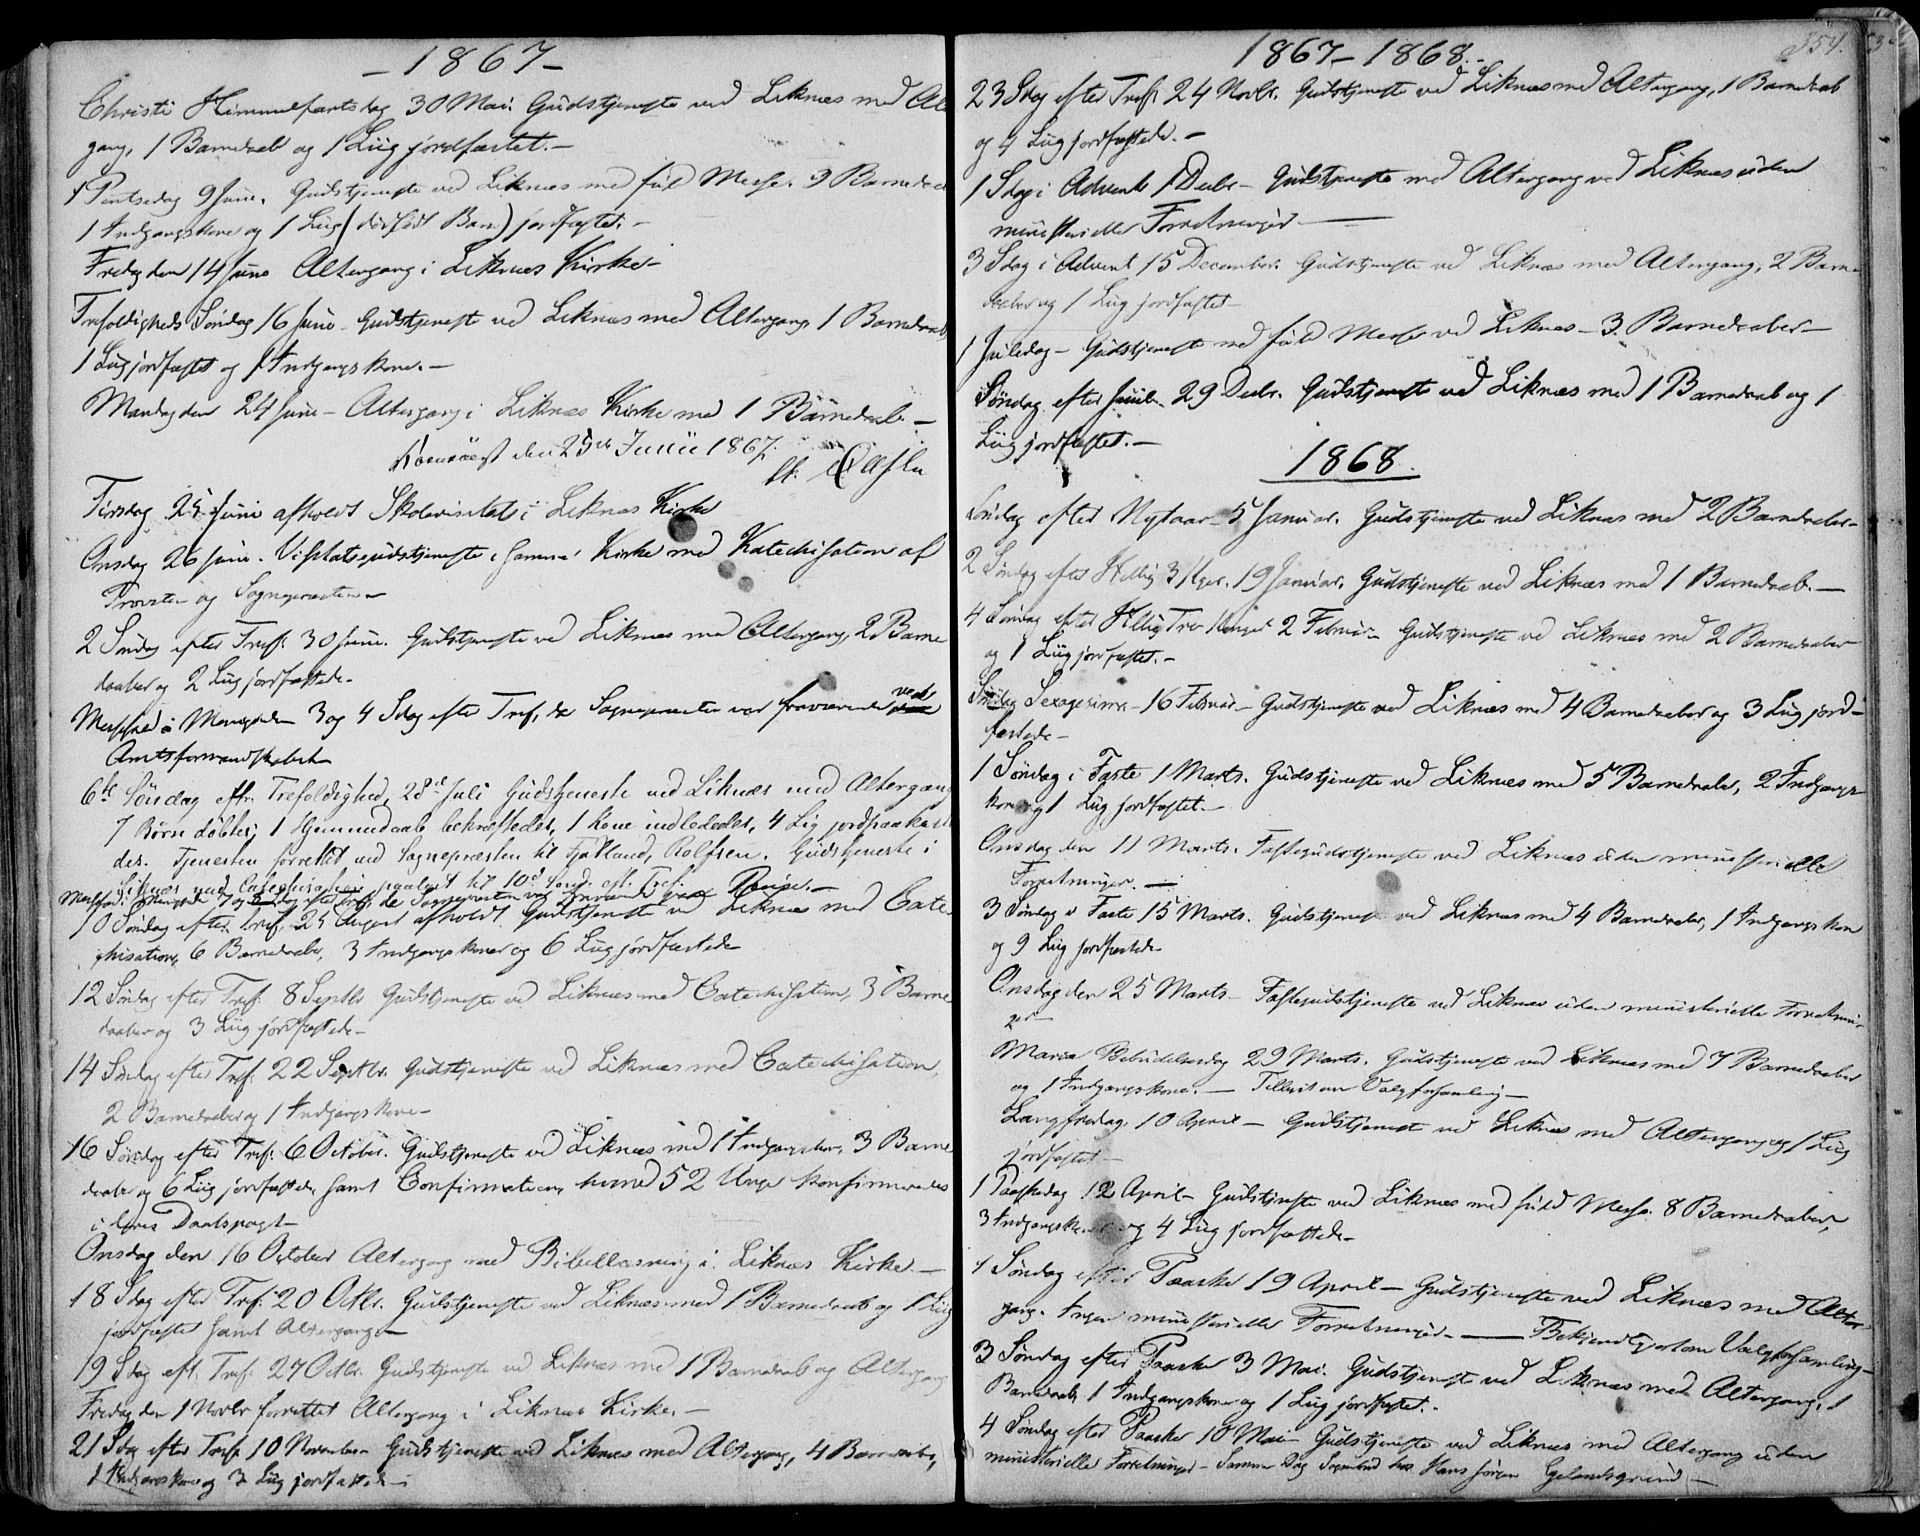 - 1867 -
Christi Himmelfartsdag 30 Mai. Gudstjeneste ved Liknæs med Al
gang, 1 Barnedaab og 1 Liig jordfæstet. -
1 Pintsedag 9 Juni. Gudstjeneste ved Liknæs med fuld Messe. 3 Barneda
1 Indgangskone og 1 Liig (dødfødt Barn) jordfæstet. -
Fredag den 14 Juni Altergang i Liknæs Kirke -
Trefoldigheds Søndag 16 Juni - Gudstjeneste ved Liknæs med Altergang, 1 Barnedaab,
1 Liig jordfæstet og 1 Indgangskone. -
Mandag den 24 Juni - Altergang i Liknæs Kirke med 1 Barnedaab. -
den 25de Junii 1867.
Tirsdag 25 Juni afholdt Skolevisitats i Liknæs Kirke
Onsdag 26 Juni. Visitatsgudstjeneste i samme Kirke med Katechisation af
Provsten og Sognepræsten -
2 Søndag efter Tref. 30 Juni. Gudstjeneste ved Liknæs med Altergang, 2 Barne
daaber og 2 Liig jordfæstede -
Messefald i Menigheden 3 og 4 Sdag efter Tref, da Sognepræsten var fraværende ved
Amtsformandskabet -
6te Søndag eftr. Trefoldighed, 28de Juli Gudstjeneste ved Liknæs med Altergang
7 Børn døbtes, 1 Hjemmedaab bekræftedes, 1 Kone indlededes, 4 Lig jordpaakaste
des. Tjenesten forrettet ved Sognepræsten til Fjotland, Rolfsen. Gudstjeneste i
Liknæs med Catechisation paalyst til 10de Sønd. eft. Tref.
Messefald i Menigheden 7 og efter Tref. da Sognepræsten var fraværende paa Reise. -
10 Søndag efter Tref. 25 August afholdt Gudstjeneste ved Liknæs med Cate-
chisation, 6 Barnedaaber, 3 Indgangskoner og 6 Liig jordfæstede
12 Søndag efter Tref. 8 Septbr Gudstjeneste ved Liknæs med Catechisation, 3 Barne
daaber og 3 Liig jordfæstede -
14 Søndag efter Tref. 22 Septbr. Gudstjeneste ved Liknæs med Catechisation,
2 Barnedaaber og 1 Indgangskone -
16 Søndag efter Tref. 6 October. Gudstjeneste ved Liknæs med 1 Indgangskone, 3 Barne
daaber og 6 Liig jordfæstede, samt Confirmation, hvorved 52 Unge konfirmeredes
i deres Daabspagt -
Onsdag den 16 October Altergang med Bibellæsning i Liknæs Kirke. -
18 Sdag efter Tref. 20 Octbr. Gudstjeneste ved Liknæs med 1 Barnedaab og 1 Liig
jordfæstet samt Altergang. -
19 Sdag eft. Tref. 27 Octbr. Gudstjeneste ved Liknæs med 1 Barnedaab og Altergang
Fredag den 1 Novbr forrettet Altergang i Liknæs Kirke. -
21 Sdag efter Tref. 10 November Gudstjeneste ved Liknæs med Altergang, 4 Barnedaaber,
1 Indgangskone og 3 Liig jordfæstede -
1867 - 1868 -
354.
23 Sdag efter Tref. 24 Novbr. Gudstjeneste ved Liknæs med Altergang, 1 Barnedaab
og 4 Liig jordfæstede. -
1 Sdag i Advent 1 Decbr - Gudstjeneste med Altergang ved Liknæs uden
ministerielle Forretninger. -
3 Sdag i Advent 15 December. Gudstjeneste ved Liknæs med Altergang, 2 Barne-
daaber og 1 Liig jordfæstet -
1 Juledag - Gudstjeneste med fuld Messe ved Liknæs - 3. Barnedaaber -
Søndag efter Juul. 29 Decbr. Gudstjeneste ved Liknæs med 1 Barnedaab og 1
Liig jordfæstet. -
1868.
Søndag efter Nytaar - 5 Januar. Gudstjeneste ved Liknæs med 2 Barnedaaber -
2 Søndag efter Hellig 3 Kger. 19 Januar. Gudstjeneste ved Liknæs med 1 Barnedaab. -
4 Søndag efter Hellig Tre Konger 2 Februar - Gudstjeneste ved Liknæs med 2 Barnedaaber
og 1 Liig jordfæstet. -
Søndag Sexagesima - 16 Februar - Gudstjeneste ved Liknæs med 4 Barnedaaber og 3 Liig jord-
fæstede -
1 Søndag i Faste 1 Marts. Gudstjeneste ved Liknæs med 5 Barnedaaber, 2 Indgangs-
koner og 1 Liig jordfæstet. -
Onsdag den 11 Marts. Fastegudstjeneste ved Liknæs uden ministerielle
Forretninger. -
3 Søndag i Faste 15 Marts. Gudstjeneste ved Liknæs med 4 Barnedaaber, 1 Indgangskone
og 9 Liig jordfæstede -
Onsdag den 25 Marts - Fastegudstjeneste ved Liknæs uden ministerielle Forretnin-
ger -
Maria Bebudelsesdag 29 Marts. Gudstjeneste ved Liknæs med 7 Barnedaaber
og 1 Indgangskone. - Tillyst om Valgforsamling -
Langfredag 10 April - Gudstjeneste ved Liknæs med Altergang og 1 Liig
jordfæstet -
1 Paaskedag 12 April - Gudstjeneste ved Liknæs med fuld Messe. 8 Barnedaaber,
3 Indgangskoner og 4 Liig jordfæstede -
1 Søndag efter Paaske 19 April - Gudstjeneste ved Liknæs med Alter-
gang. Ingen ministerielle Forretninger. - Bekjendtgjort om Valgforsamling -
3 Søndag efter Paaske 3 Mai. Gudstjeneste ved Liknæs med Altergang, 1
Barnedaab, 1 Indgangskone og 1 Liig jordfæstet. -
4 Søndag efter Paaske 10 Mai - Gudstjeneste ved Liknæs med Altergang uden
ministerielle Forretninger - Samme Dag Sognebud hos Hans Jørgen Gelandsgrund -